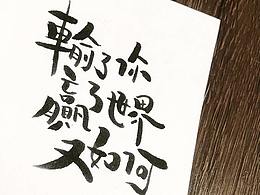 輸了你
贏了世界
又如何